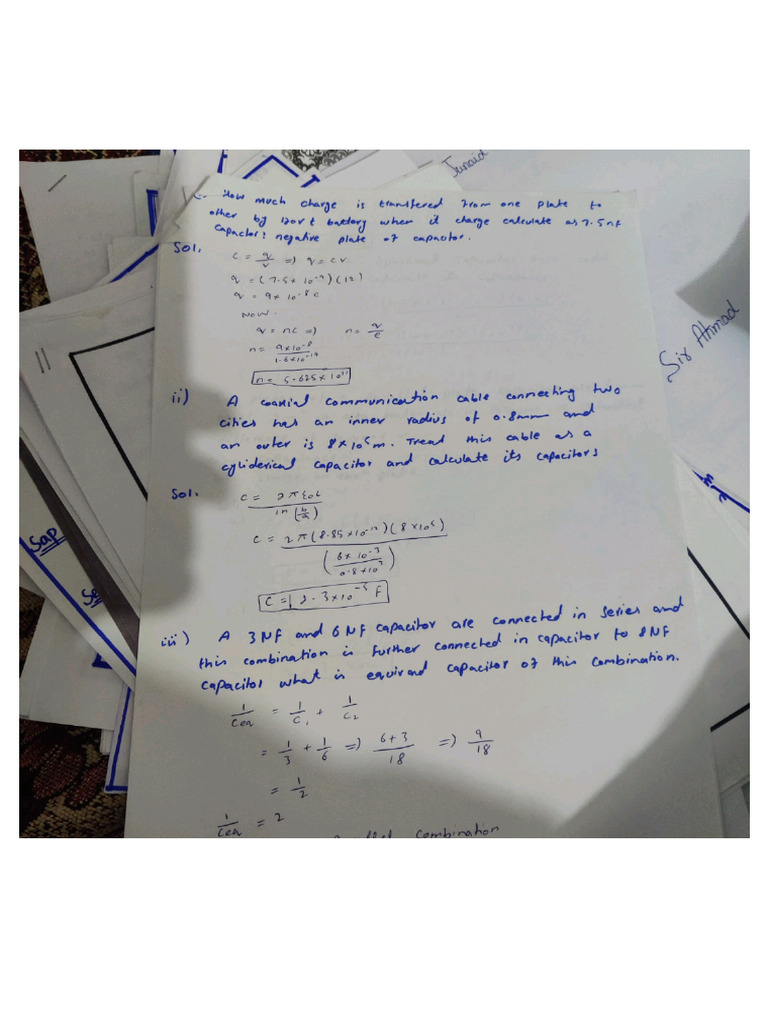 Junaid
How much charge is transfered from one plate to
other by 120v t battory when it charge calculate as 7.5nf
Capactor? negative plate of capacitor.
Sol.
C = q/v => q = cv
q = (7.5x10⁻⁹)(12)
q = 9x10⁻⁸c
Now.
q = ne => n = q/e
n = 9x10⁻⁸/1.6x10⁻¹⁹
n = 5.625x10¹¹
Sir Ahmad
ii) A coaxial communication cable connecting two
cities has an inner radius of 0.8mm and
an outer is 8x10⁵m. Tread this cable as a
cyliderical capacitor and calculate its capacitors
Sol.
C = 2πε₀L/ln(b/a)
C = 2π(8.85x10⁻¹²)(8x10⁵)/(6x10⁻³/0.8x10³)
C = 8.3x10⁻⁵F
Sap
iii) A 3NF and 6NF capacitor are connected in series and
this combination is further connected in capacitor to 8NF
capacitor what is equivand capacitor of this combination.
1/Ceq = 1/C₁ + 1/C₂
= 1/3 + 1/6 => 6+3/18 => 9/18
= 1/2
1/Ceq = 2
Combination